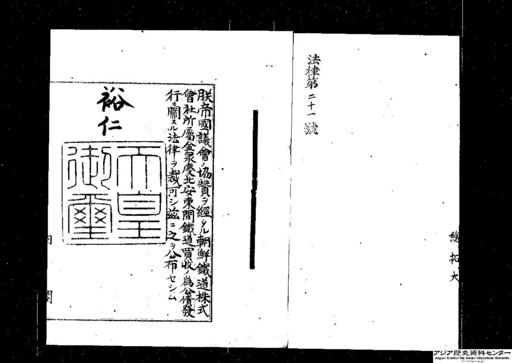 法律第二十一號
朕帝國議會ノ協贊ヲ經タル朝鮮鐵道株式
會社所屬金泉慶北安東間鐵道買收ノ爲公債發
行ニ關スル法律ヲ裁可シ茲ニ之ヲ公布セシム
裕仁
天皇
御璽
内閣
拓大
アジア歴史資料センター
Japan Center for Asian Historical Records